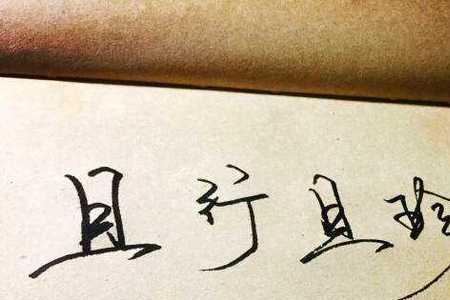 且行且珍